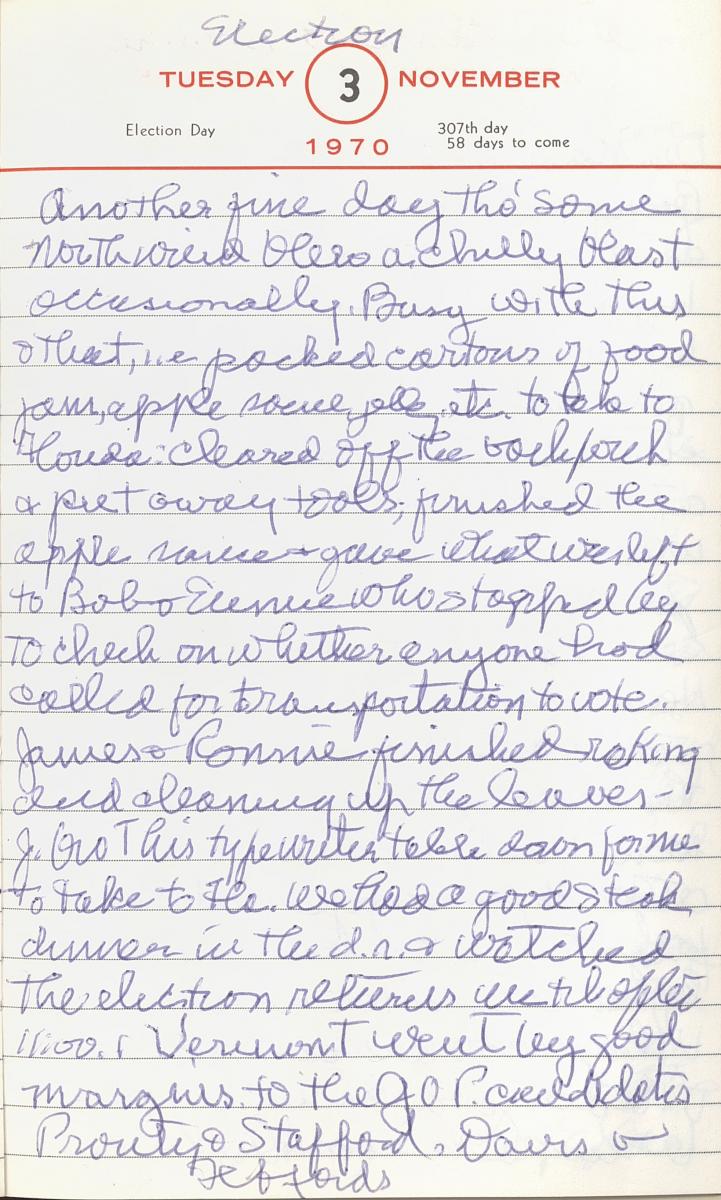 Election
TUESDAY 3 NOVEMBER
Election Day 1970 307th day
58 days to come
Another fine day tho' some
North wind blew a chilly blast
occasionally. Busy with this
& that, i.e packed cartons of food
jam, apple sauce, jelly, etc. to take to
Florida: cleared off the back porch
& put away tools; finished the
apple sauce & gave what was left
to Bob & Eunice who stopped by
to check on whether anyone had
called for transportation to vote.
James & Ronnie finished raking
and cleaning up the leaves -
J. bro This typewriter table down for me
to take to Fla. We had a good steak
dinner in the d.r. & watched
the election returns until after
11:00. Vermont went by good
margins to the GOP. candidates
Prouty & Stafford, Davis &
Jeffords